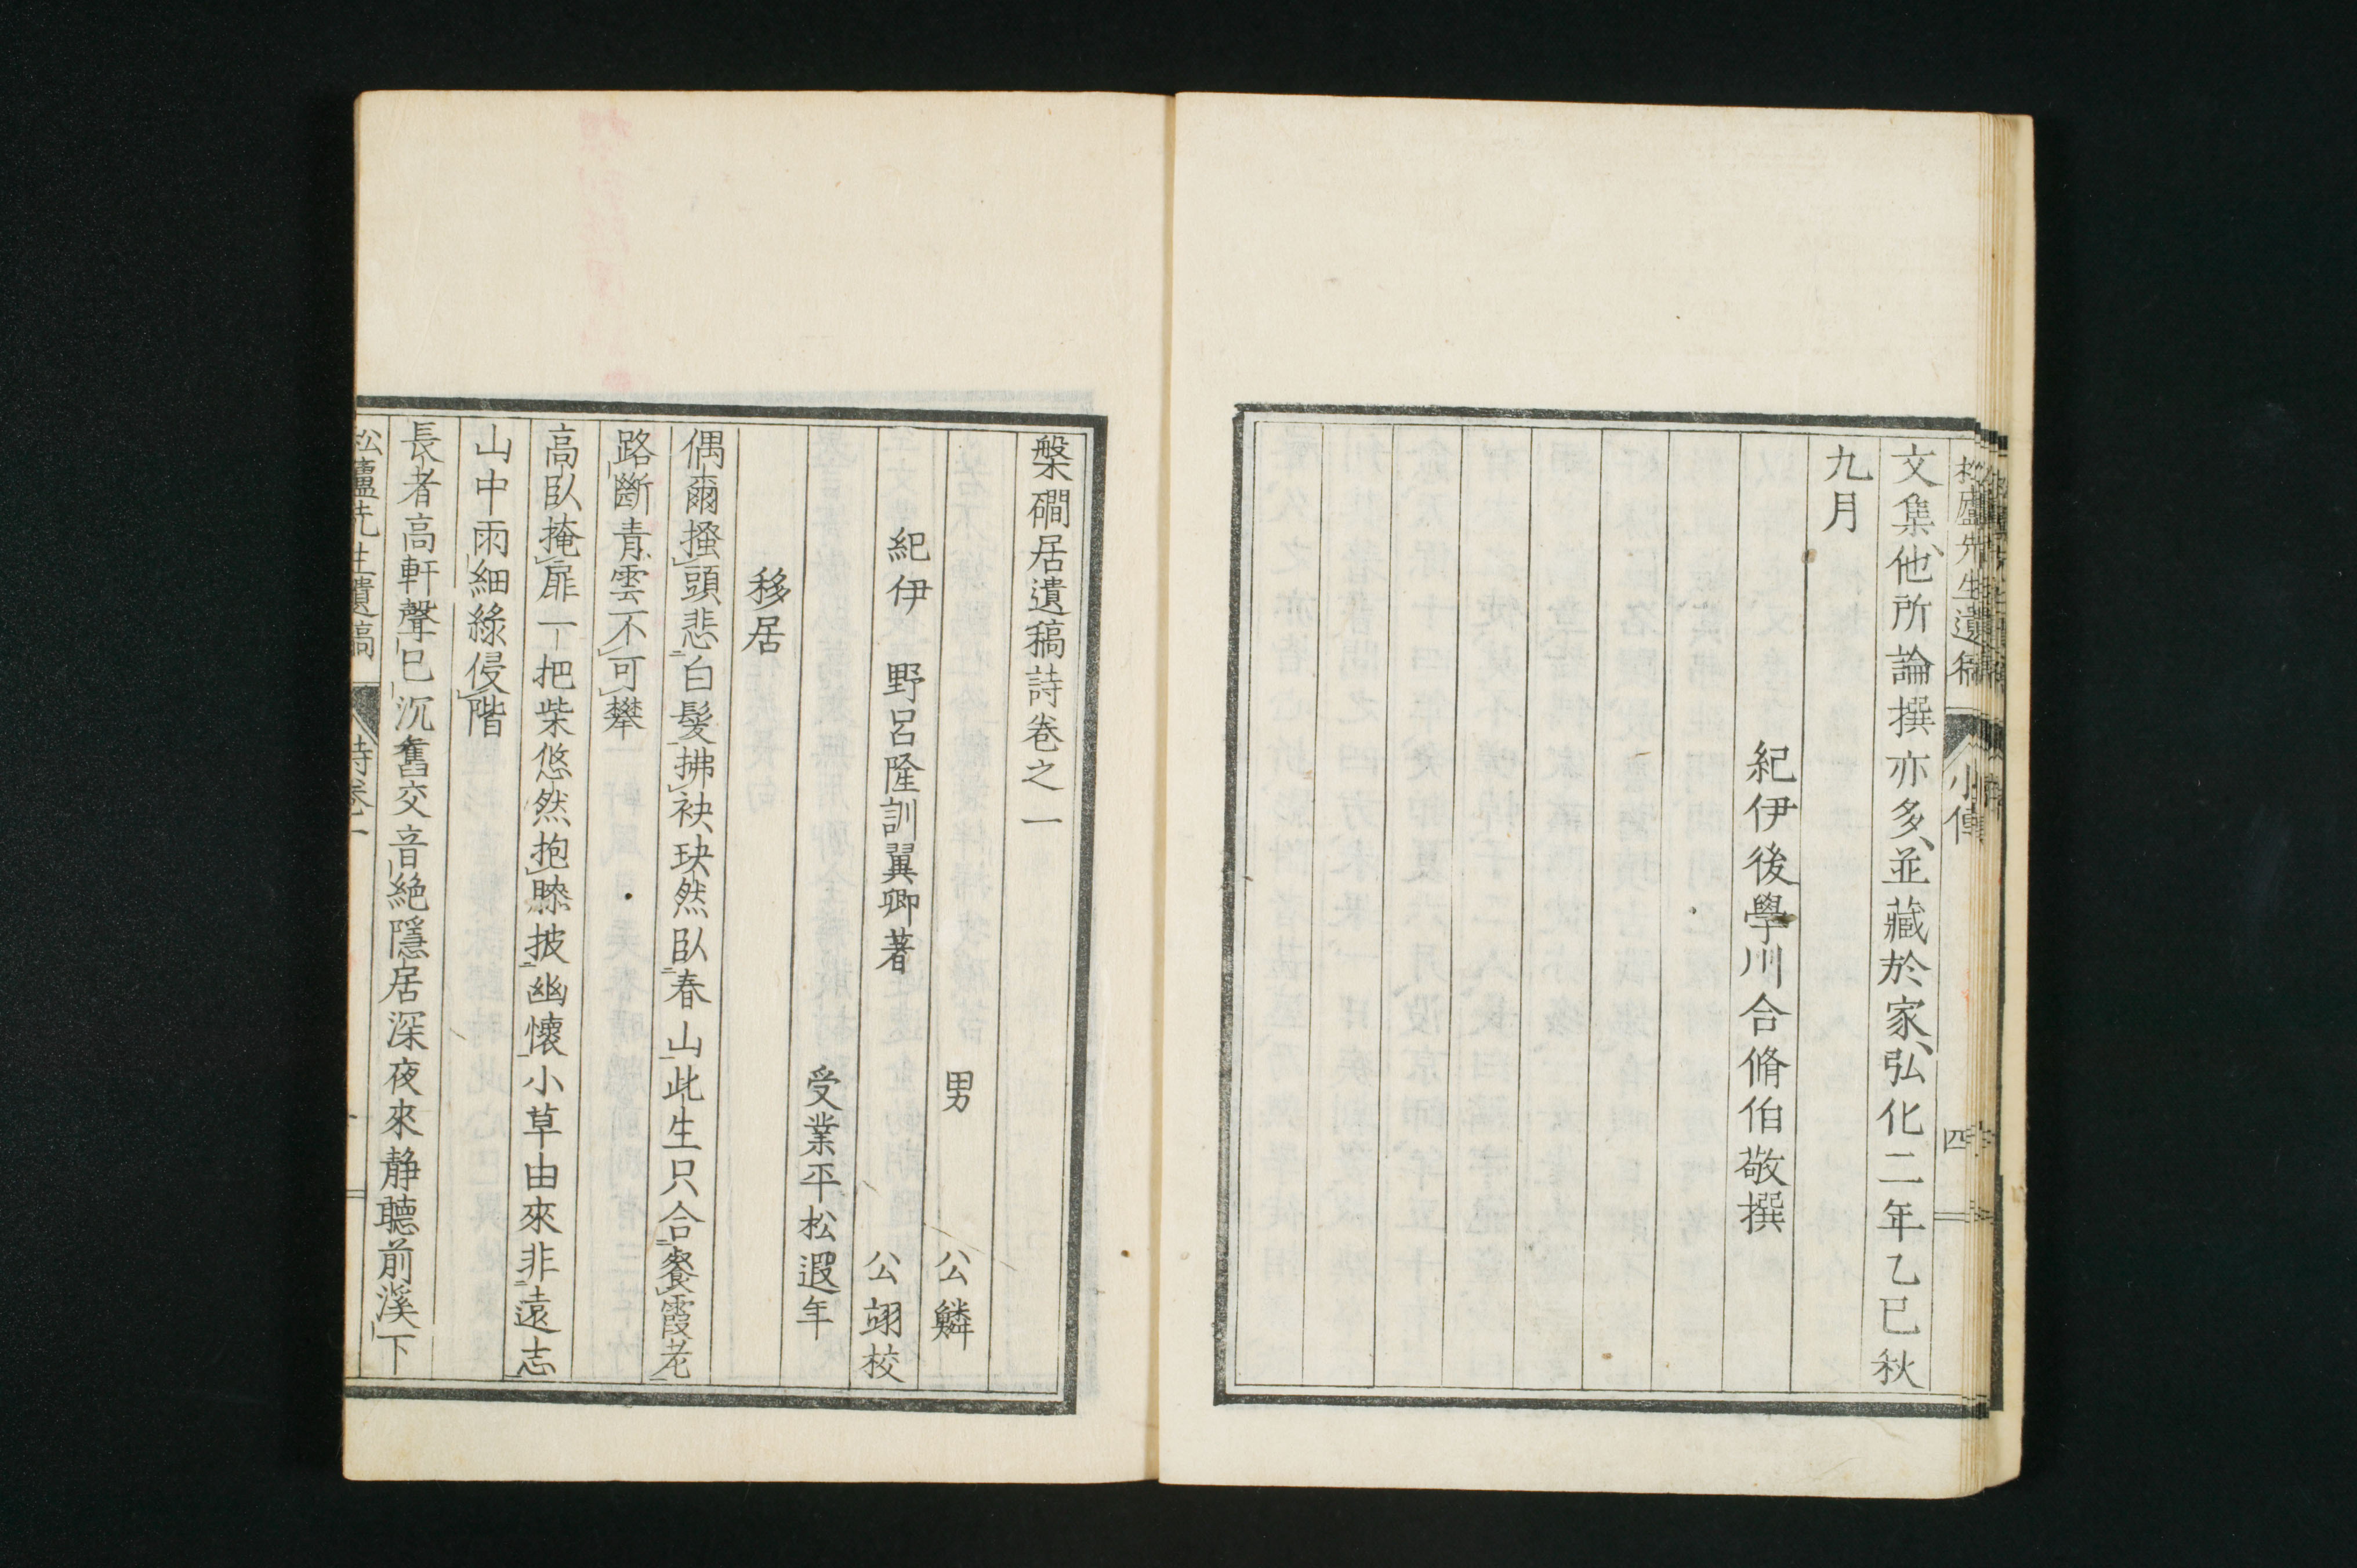 松廬先生遺稿 小傳 四
文集、他所論撰亦多、並藏於家、弘化二年乙巳秋
九月
紀伊後學川合脩伯敬撰
槃磵居遺稿詩卷之一
男 公鱗
紀伊 野呂隆訓翼卿著
公翊校
受業平松遐年
移居
偶爾搔頭悲白髮拂袂玦然臥春山此生只合餐霞老
路斷青雲不可攀
高臥掩扉一把柴悠然抱膝披幽懷小草由來非遠志
山中雨細綠侵階
長者高軒聲已沉舊交音絕隱居深夜來靜聽前溪下
松廬先生遺稿 詩卷一